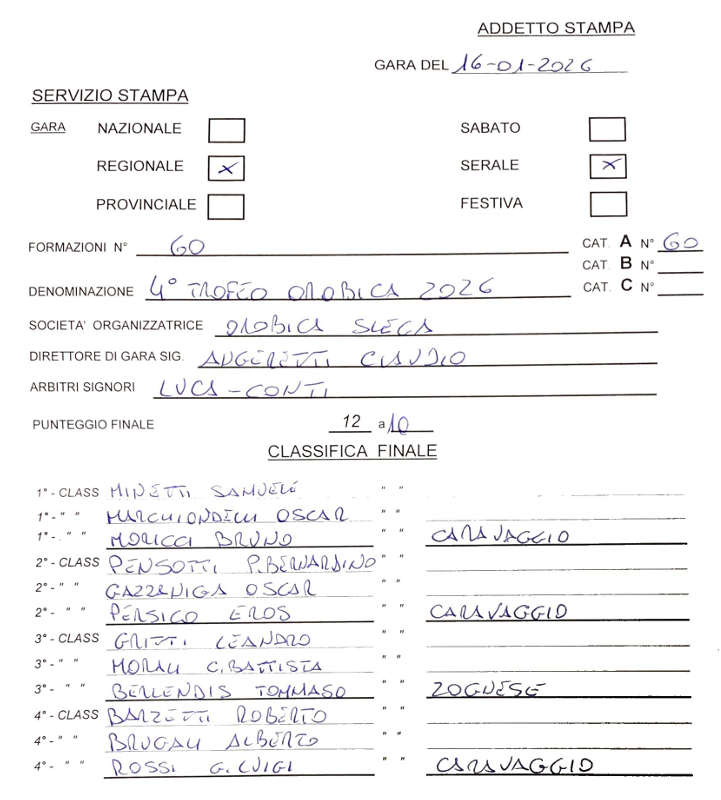 ADDETTO STAMPA
GARA DEL 16-01-2026
SERVIZIO STAMPA
GARA NAZIONALE SABATO
REGIONALE x SERALE x
PROVINCIALE FESTIVA
FORMAZIONI N° 60 CAT. A N° 60
CAT. B N°
DENOMINAZIONE 4° TROFEO OROBICA 2026 CAT. C N°
SOCIETA' ORGANIZZATRICE OROBICA SLEGA
DIRETTORE DI GARA SIG. AUGERETTI CLAUDIO
ARBITRI SIGNORI LUCA-CONTI
PUNTEGGIO FINALE 12 a 10
CLASSIFICA FINALE
1° - CLASS MINETTI SAMUELE " "
1° - " " MARCHIONDELLI OSCAR " "
1° - " " MORICCI BRUNO " " CARAVAGGIO
2° - CLASS PENSOTTI P.BERNARDINO " "
2° - " " GAZZANIGA OSCAR " "
2° - " " PERSICO EROS " " CARAVAGGIO
3° - CLASS GRITTI LEANDRO " "
3° - " " MORALI G.BATTISTA " "
3° - " " BERLENDIS TOMMASO " " ZOGNESE
4° - CLASS BARZETTI ROBERTO " "
4° - " " BRUGALI ALBERTO " "
4° - " " ROSSI G.LUIGI " " CARAVAGGIO